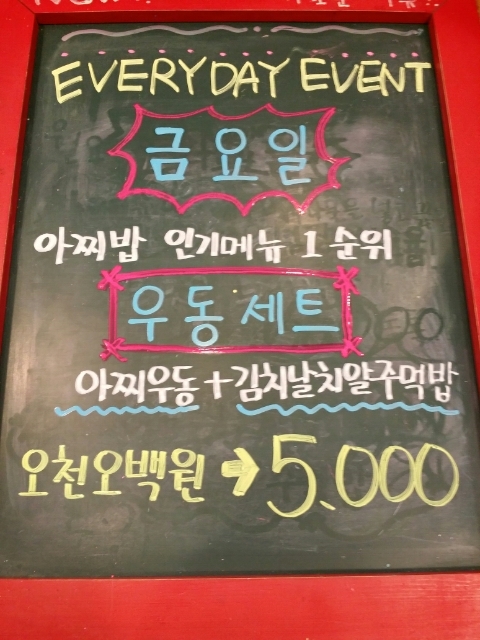 EVERYDAY EVENT
금요일
아찌밥 인기메뉴 1순위
우동세트
아찌우동+김치날치알주먹밥
오천오백원 → 5.000